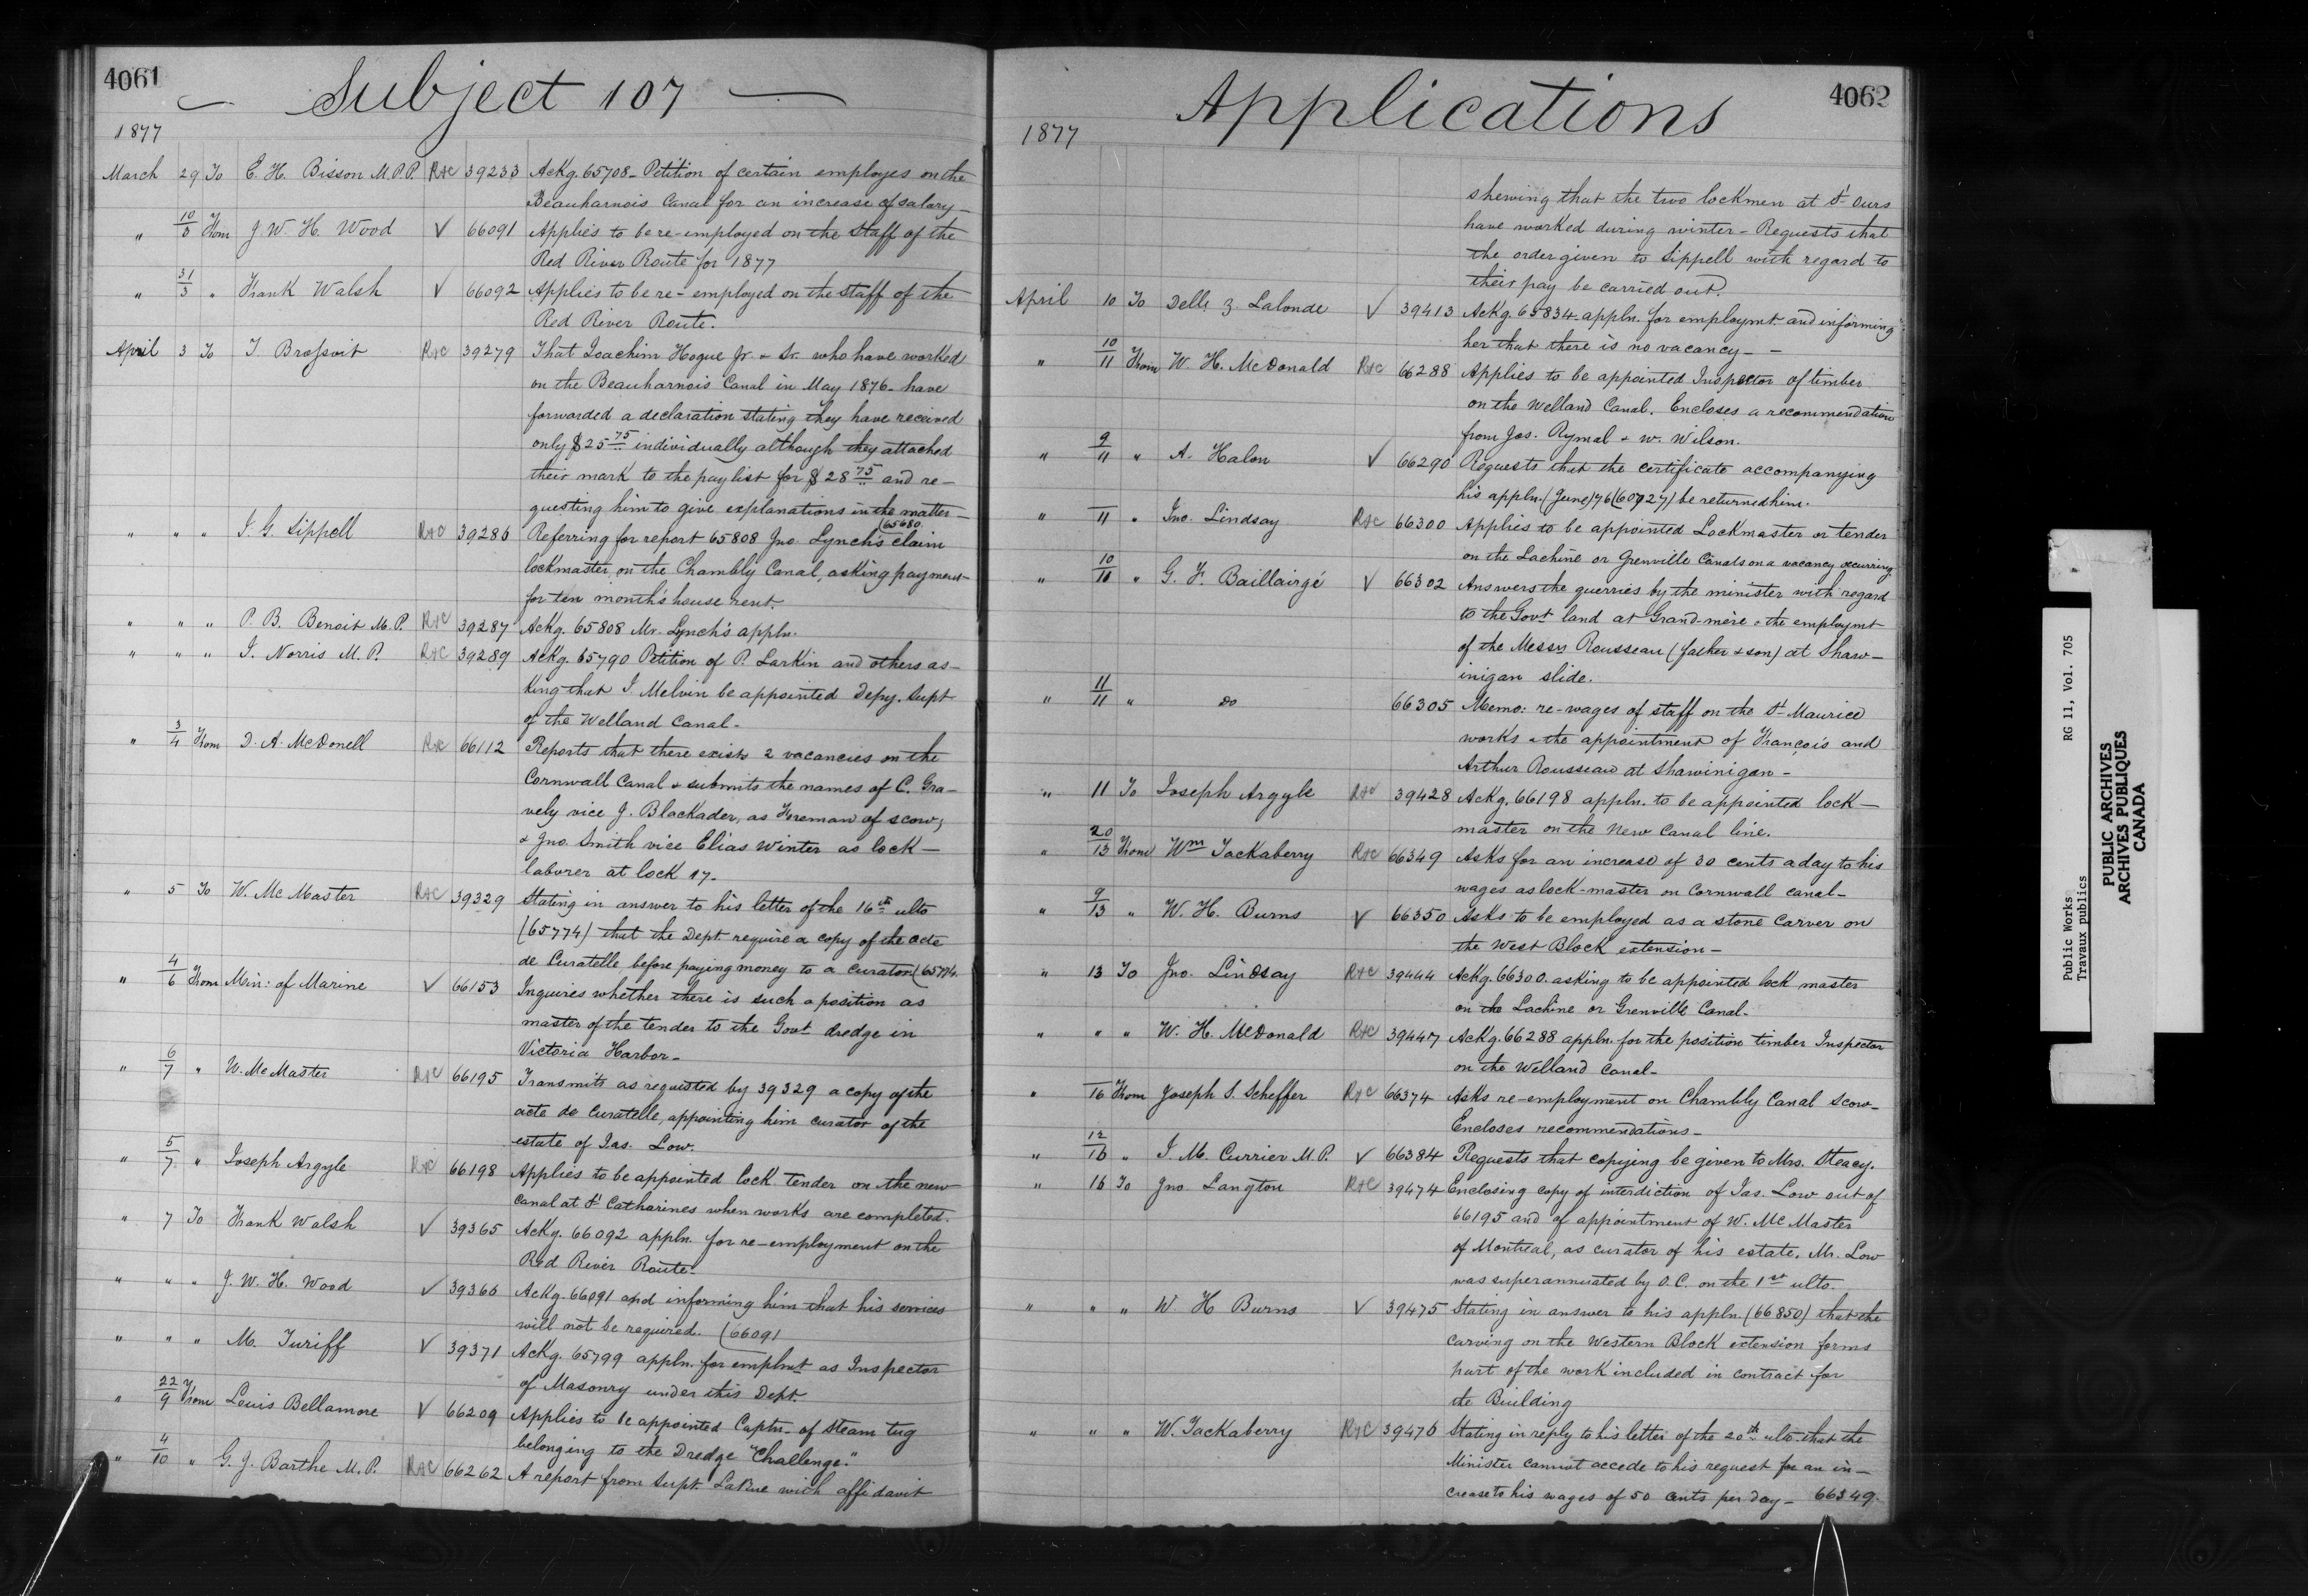 4061
Subject 107
1877
March 29 To E. H. Bisson M.P.P. R&C 39233 Ackg. 65708 - Petition of certain employes on the
Beauharnois Canal for an increase of salary -
" 10/3 From J. W. H. Wood V 66091 Applies to be re-employed on the staff of the
Red River Route for 1877
" 31/3 " Frank Walsh V 66092 Applies to be re-employed on the staff of the
Red River Route.
April 3 To T. Brossoit R&C 39279 That Joachim Hogue Jr. & Sr. who have worked
on the Beauharnois Canal in May 1876 - have
forwarded a declaration stating they have received
only $25 75 individually although they attached
their mark to the pay list for $28 75 and re-
questing him to give explanations in the matter -
" " " J. G. Sippell R&C 39286 Referring for report 65808 Jno. Lynch's (65680 claim
lockmaster on the Chambly Canal, asking payment
for ten month's house rent.
" " " P. B. Benoit M.P. R&C 39287 Ackg. 65808 Mr. Lynch's appln.
" " " J. Norris M.P. R&C 39289 Ackg. 65790 Petition of P. Larkin and others as-
king that J. Melvin be appointed Depy. Supt
of the Welland Canal -
" 3/4 From D. A. McDonell R&C 66112 Reports that there exists 2 vacancies on the
Cornwall Canal & submits the names of C. Gra-
vely vice J. Blackader, as Foreman of scow,
& Jno. Smith vice Elias Winter as lock-
laborer at lock 17.
" 5 To W. McMaster R&C 39329 Stating in answer to his letter of the 16th ulto
(65774) that the Dept. require a copy of the acte
de Curatelle before paying money to a curator (65774.
" 4/6 From Min: of Marine V 66153 Inquires whether there is such a position as
master of the tender to the Govt dredge in
Victoria Harbor -
" 6/7 " W. McMaster R&C 66195 Transmits as requested by 39329 a copy of the
acte de Curatelle, appointing him curator of the
estate of Jas. Low.
" 5/7 " Joseph Argyle R&C 66198 Applies to be appointed lock tender on the new
canal at St Catharines when works are completed.
" 7 To Frank Walsh V 39365 Ackg. 66092 appln. for re-employment on the
Red River Route -
" " " J. W. H. Wood V 39366 Ackg. 66091 and informing him that his services
will not be required. (66091
" " " M. Turiff V 39371 Ackg. 65799 appln. for emplmt as Inspector
of Masonry under this Dept.
" 22/9 From Louis Bellamore V 66209 Applies to be appointed Captn. of steam tug
belonging to the Dredge "Challenge."
" 4/10 " G. J. Barthe M.P. R&C 66262 A report from Supt. LaRue with affidavit
4062
Applications
1877
shewing that the two lockmen at St Ours
have worked during winter - Requests that
the order given to Sippell with regard to
their pay be carried out.
April 10 To Delle Z. Lalonde V 39413 Ackg. 65834 appln. for employmt. and informing
her that there is no vacancy - -
" 10/11 From W. H. McDonald R&C 66288 Applies to be appointed Inspector of timber
on the Welland Canal. Encloses a recommendation
from Jos. Rymal & W. Wilson.
" 9/11 " A. Halon V 66290 Requests that the certificate accompanying
his appln. (June) 76 (60727) be returned him.
" 11 " Jno. Lindsay R&C 66300 Applies to be appointed Lockmaster or tender
on the Lachine or Grenville Canals on a vacancy occurring
" 10/11 " G. F. Baillairgé V 66302 Answers the querries by the minister with regard
to the Govt land at Grand-mère & the employmt
of the Messrs Rousseau (father & son) at Shaw-
inigan slide.
" 11/11 " do 66305 Memo: re-wages of staff on the St Maurice
works & the appointment of François and
Arthur Rousseau at Shawinigan -
" 11 To Joseph Argyle R&C 39428 Ackg. 66198 appln. to be appointed lock-
master on the new Canal line.
" 20/13 From Wm Tackaberry R&C 66349 Asks for an increase of 30 cents a day to his
wages as lock-master on Cornwall Canal -
" 9/13 " W. H. Burns V 66350 Asks to be employed as a stone carver on
the West Block extension -
" 13 To Jno. Lindsay R&C 39444 Ackg. 66300 asking to be appointed lock master
on the Lachine or Grenville Canal -
" " " W. H. McDonald R&C 39447 Ackg. 66288 appln. for the position timber Inspector
on the Welland Canal -
" 16 From Joseph S. Scheffer R&C 66374 Asks re-employment on Chambly Canal scow -
Encloses recommendations -
" 12/16 " J. M. Currier M.P. V 66384 Requests that copying be given to Mrs. Steacy.
" 16 To Jno. Langton R&C 39474 Enclosing copy of interdiction of Jas. Low out of
66195 and of appointment of W. McMaster
of Montreal, as curator of his estate. Mr. Low
was superannuated by O.C. on the 1st ulto.
" " " W H Burns V 39475 Stating in answer to his appln. (66350) that the
carving on the Western Block extension forms
part of the work included in contract for
the Building
" " " W. Tackaberry R&C 39476 Stating in reply to his letter of the 20th ulto. that the
Minister cannot accede to his request for an in-
crease to his wages of 50 cents per day - 66349.
Public Works RG 11, Vol. 705
Travaux publics
PUBLIC ARCHIVES
ARCHIVES PUBLIQUES
CANADA